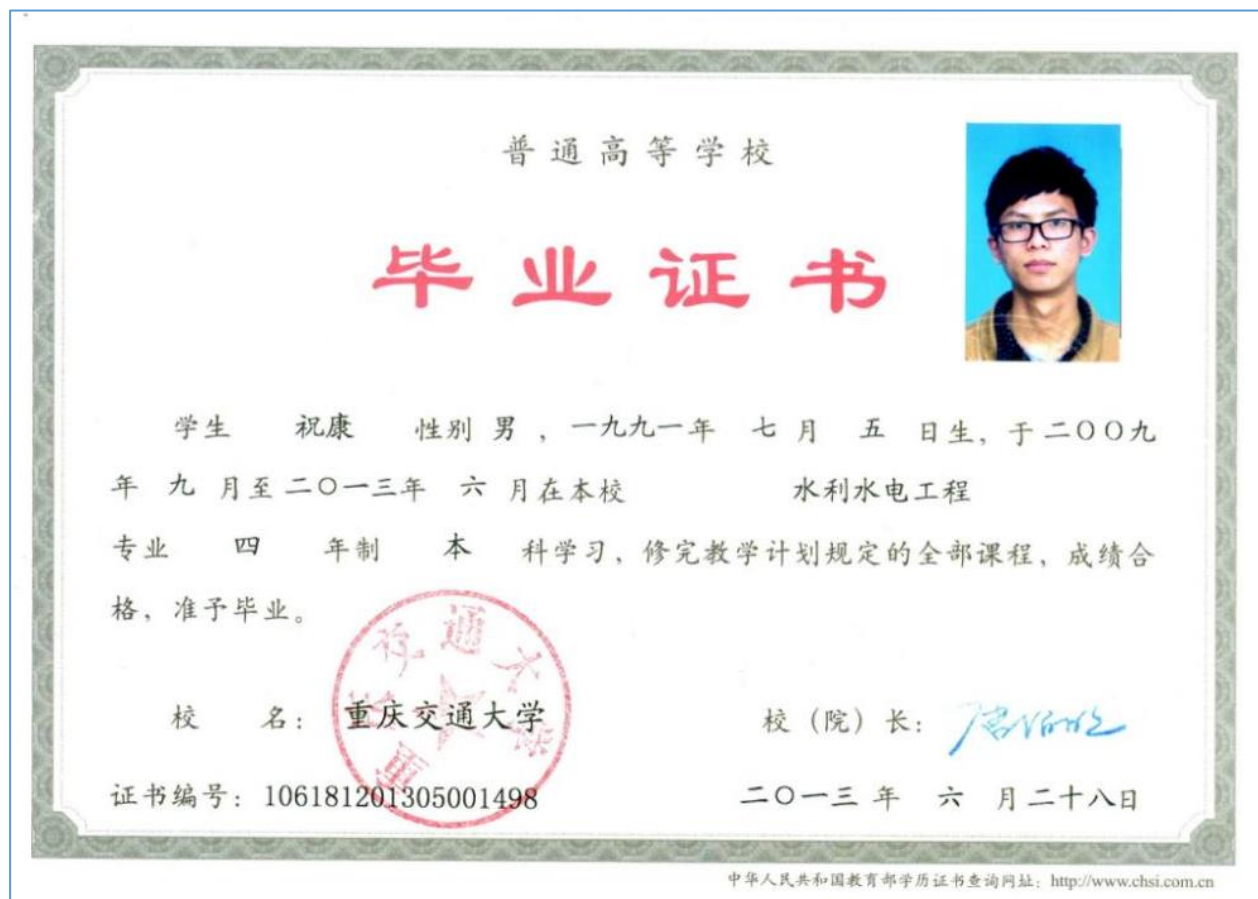 普通高等学校
毕业证书
学生 祝康 性别 男，一九九一年 七 月 五 日生，于二〇〇九
年 九 月至二〇一三年 六 月在本校 水利水电工程
专业 四 年制 本 科学习，修完教学计划规定的全部课程，成绩合
格，准予毕业。
重庆交通大学
校 名：重庆交通大学 校（院）长：
证书编号：106181201305001498 二〇一三 年 六 月二十八日
中华人民共和国教育部学历证书查询网址：http://www.chsi.com.cn